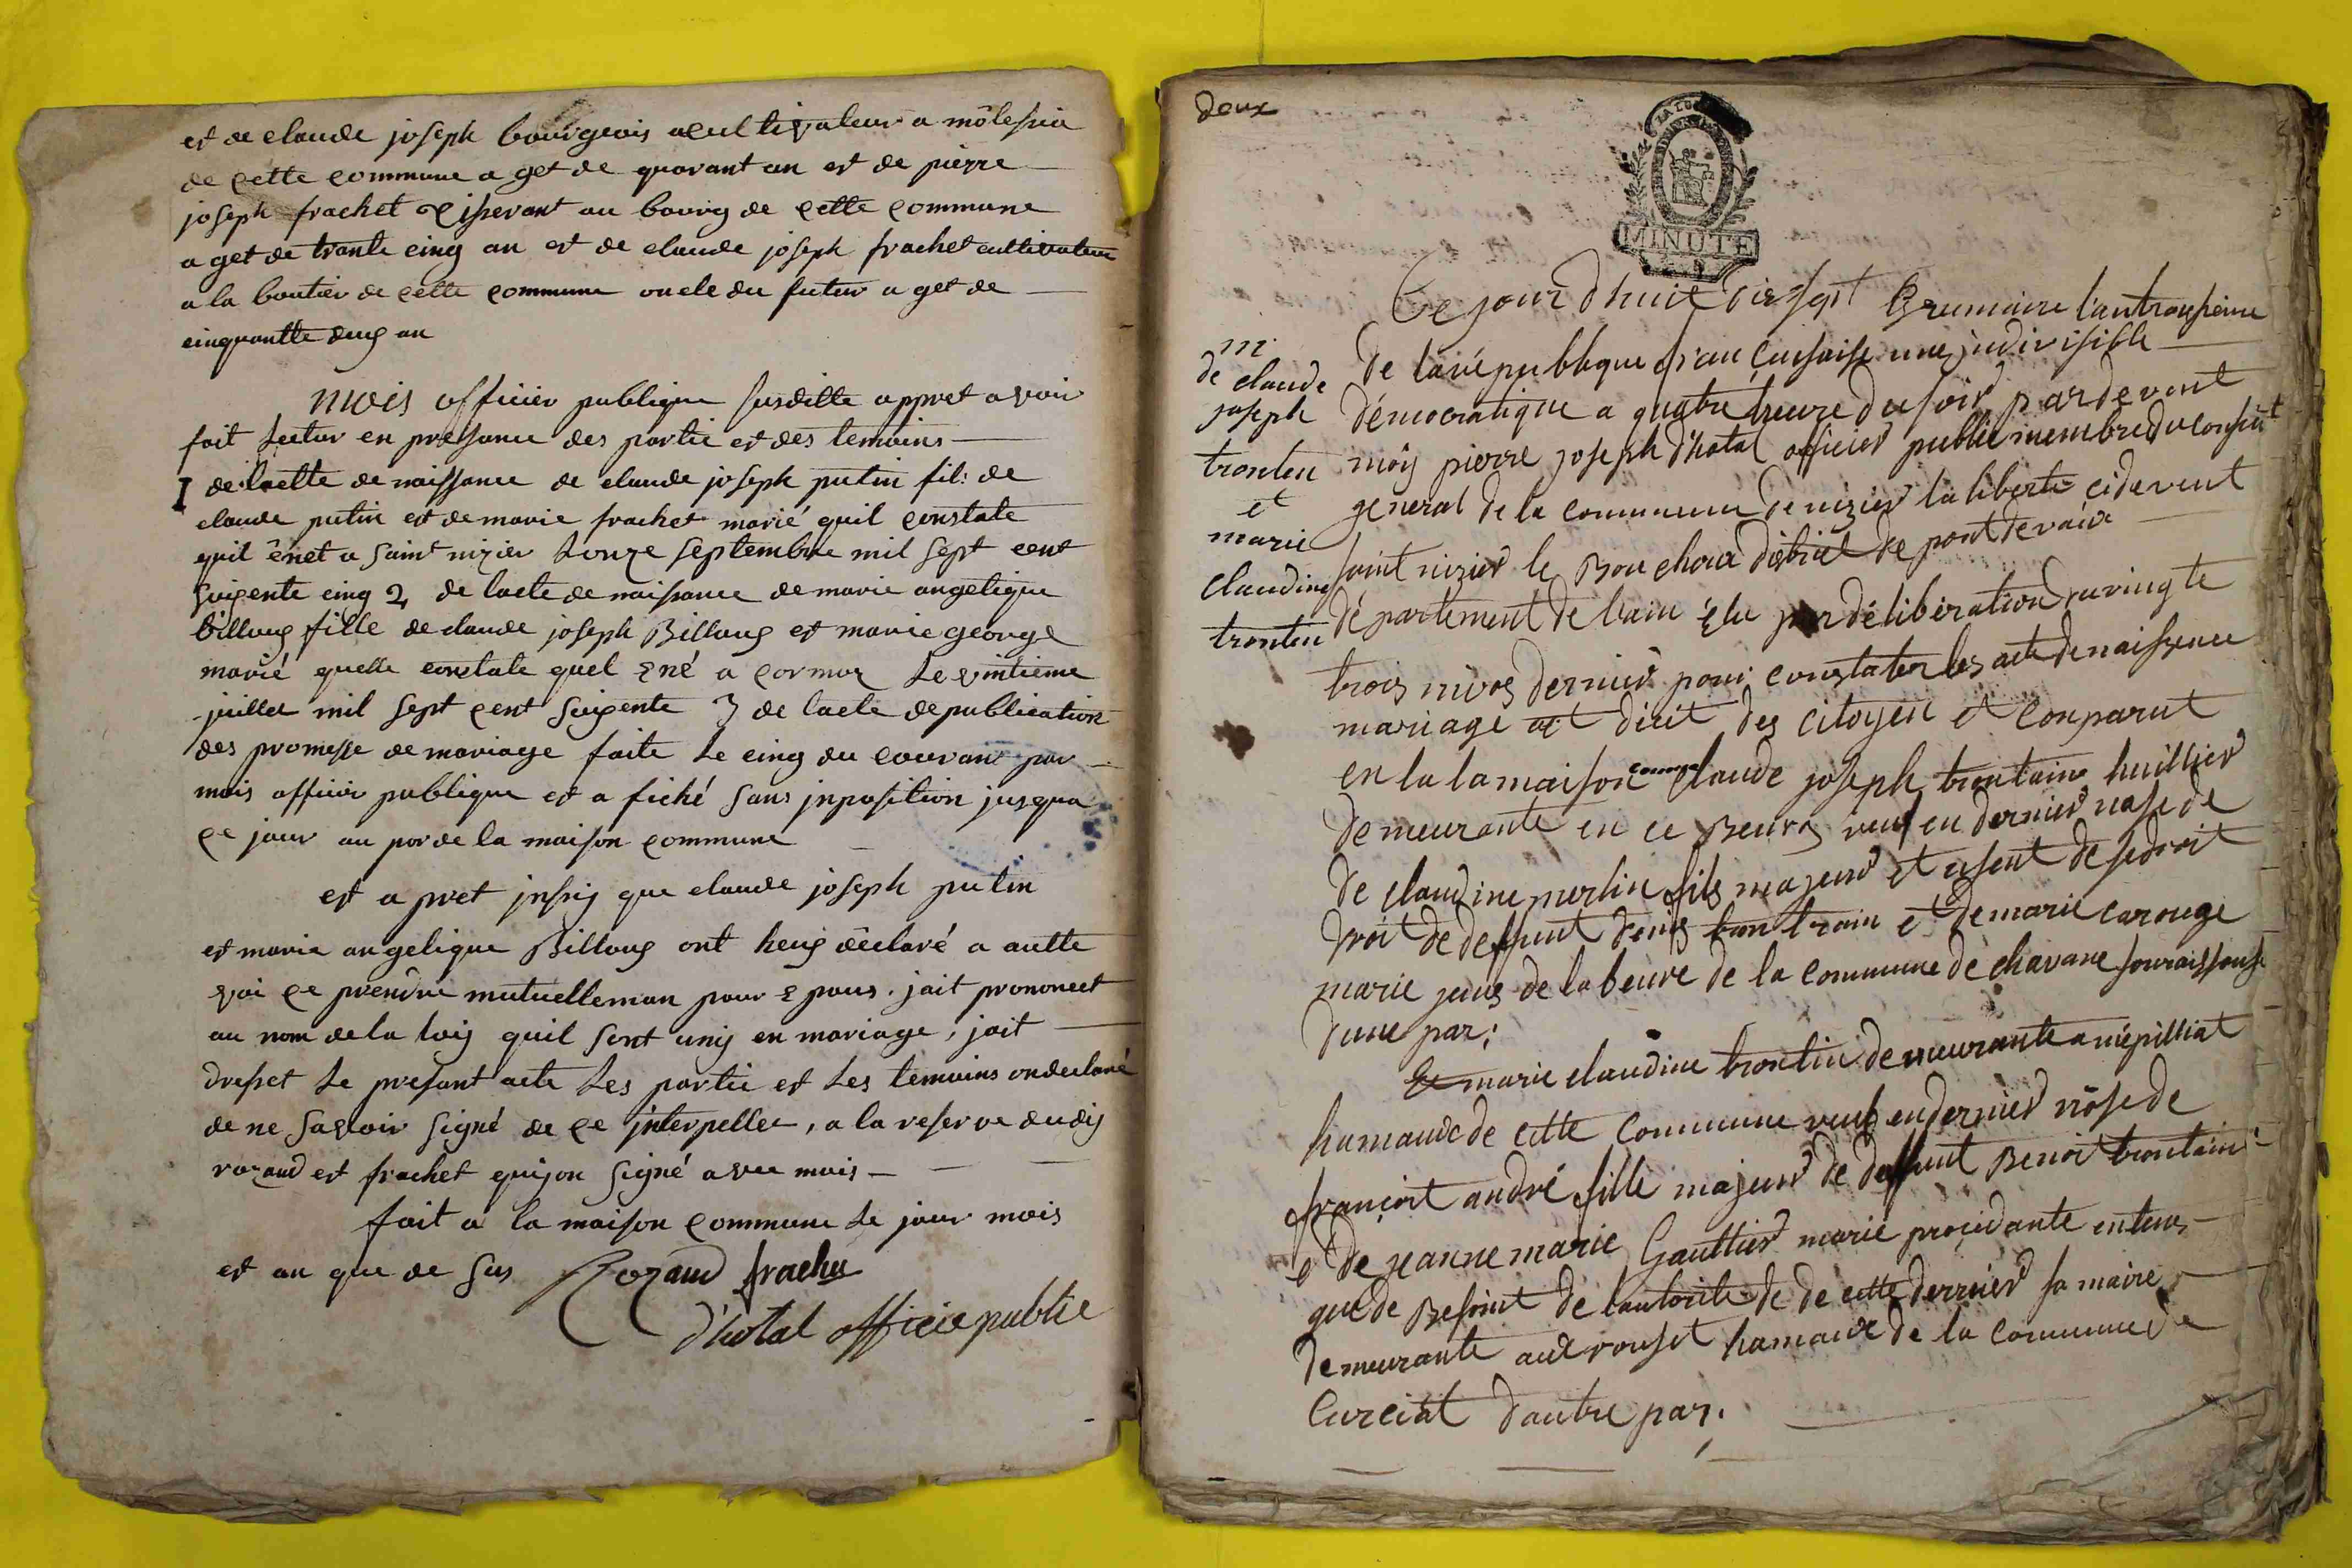 et de claude joseph bourgeois a cultivateur a môlesiá
de cette commune a get de quarant an et de pierre
joseph frachet tisserant au bourg de cette commune
a get de trante cinq an et de claude joseph frachet cultivateur
a la boutier de cette commune oncle du futur a get de
cinquantte deuz an
mois officier publique susditte appret avoir
fait lectur en presance des partie et des temoins
I de lactte de naissance de claude joseph putin fil: de
claude putin et de marie frachet marié quil constate
quil ênet a saint nizier le onze septembre mil sept cent
soixente cinq 2, de lacte de naissance de marie angelique
billoug fille de claude joseph Billoug et marie george
marié quelle constate quel ené a cormoz le vintieme
juillet mil sept cent soixente 3 de lacte de publication
des promesse de mariage faite le cinq du courant par
mois officier publique et a fiché sans jnposition jusqua
ce jour au por de la maison commune
et a pret jnsi que claude joseph putin
et marie angelique Billoug ont heu déclaré a autte
voi ce prendre mutuelleman pour epous. jait prononcet
au nom de la loij quil sont unij en mariage, jait
dresset le presant acte les partie et les temoins on declaré
de ne savoir signé de ce jnterpeller, a la reserve dudij
rozand et frachet quijon signé avec mois
fait a la maison commune le jour mois
et an que de sus Rozand frachet
d'hotal officie public
deux
LA LOI
MINUTE
m.
de claude
joseph
trontin
et
marie
claudine
trontin
Ce jourd'huit dix sept Brumaire l'an trousieme
de la république francensaise une jndivisible
démocratique a quatre heure du soir pardevent
môij pierre joseph d'hotal officier public membre du conseil
general de la commune de nizier la liberté cidevent
saint nizier le Bouchoux district de pont de vaux
département de l'ain élu par délibération du vingte
trois nivos dernier pour constater les acte de naissence
mariage et décit des citoyen et conparut
en la la maison commune claude joseph trontain huillier
demeurante en ce Beurg veuf en dernier nose de
de claudine perlin fils majeur et usent de se droit
droit de deffunt denis trontrain et de marie carouge
marie jeus de labeure de la commune de chavane souraissouse
dune par;
Et marie claudine trontin demeurante a mépilliat
hamaude de cette commune veuf en dernier nôse de
françoit andré fille majeur de deffunt Benoi trontain
e de jeanne marie Gauttier marie procedante entent
que de Besoint de lautorité de de cette dernier sa maire
demeurante aux rouset hamaux de la commune de
Curciat d'autre par.